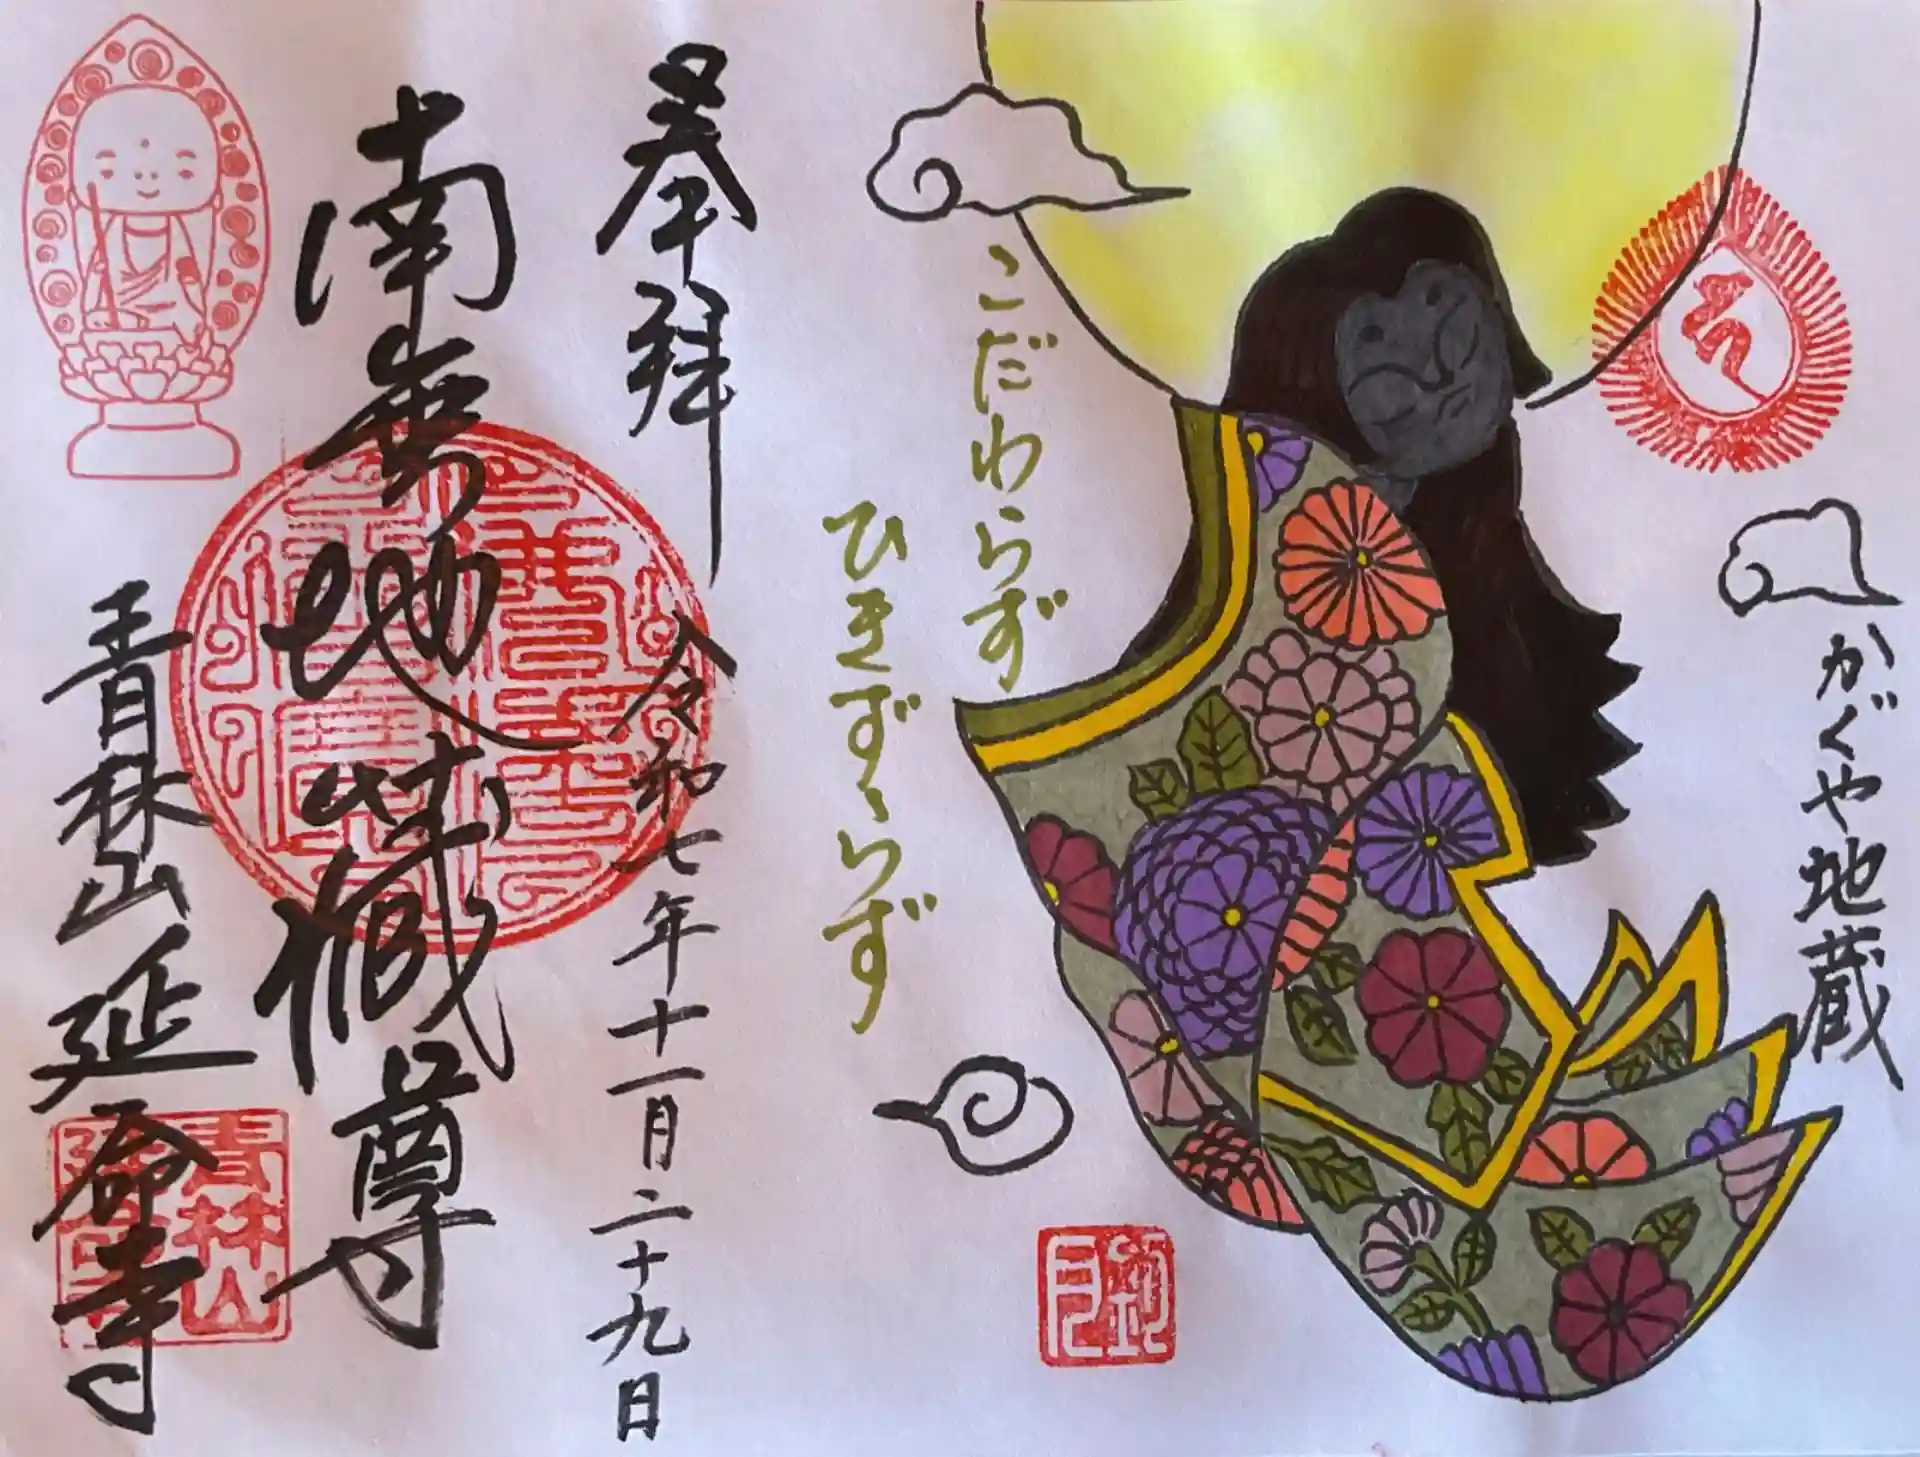 かぐや地蔵
こだわらず
ひきずゝらず
奉拝
令和七年十一月二十九日
南無地蔵尊
青林山延命寺
青林山